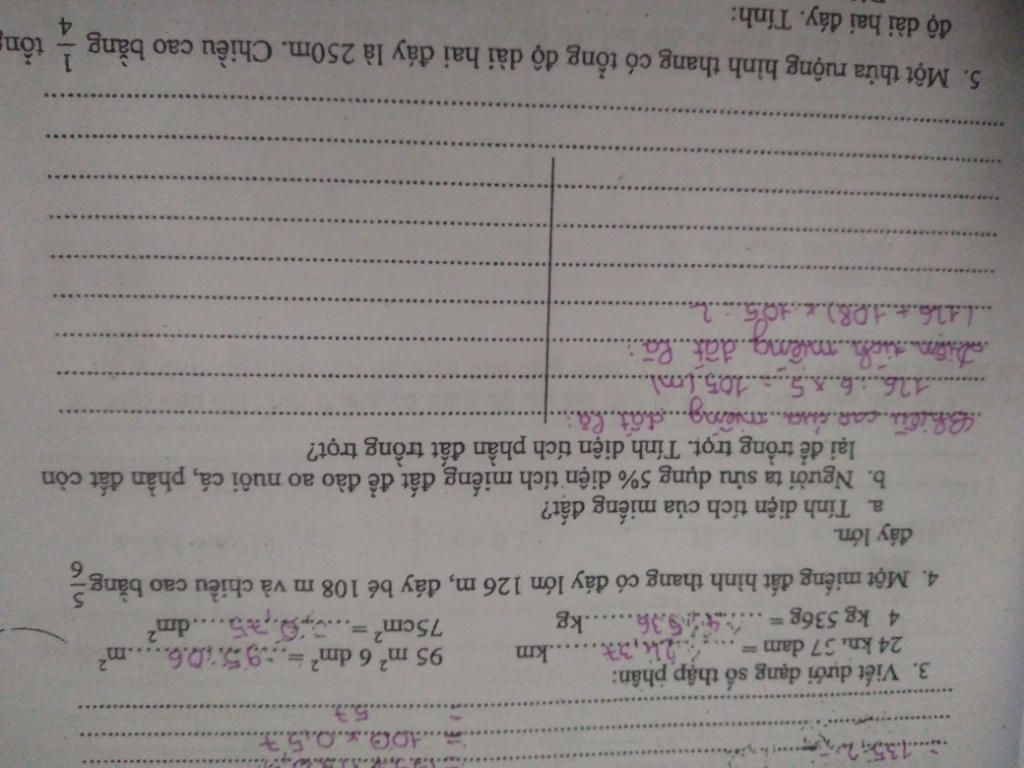 = 135,2
= 100 x 0,57
= 57
3. Viết dưới dạng số thập phân:
24 km 37 dam = ...24,37...km 95 m² 6 dm² = ...95,06...m²
4 kg 536g = ...4,536...kg 75cm² = ...0,75...dm²
4. Một miếng đất hình thang có đáy lớn 126 m, đáy bé 108 m và chiều cao bằng 5/6
đáy lớn.
a. Tính diện tích của miếng đất?
b. Người ta sửu dụng 5% diện tích miếng đất để đào ao nuôi cá, phần đất còn
lại để trồng trọt. Tính diện tích phần đất trồng trọt?
Chiều cao của miếng đất là:
126 : 6 x 5 = 105 (m)
Diện tích miếng đất là:
(126 + 108) x 105 : 2
5. Một thửa ruộng hình thang có tổng độ dài hai đáy là 250m. Chiều cao bằng 1/4 tổng
độ dài hai đáy. Tính: